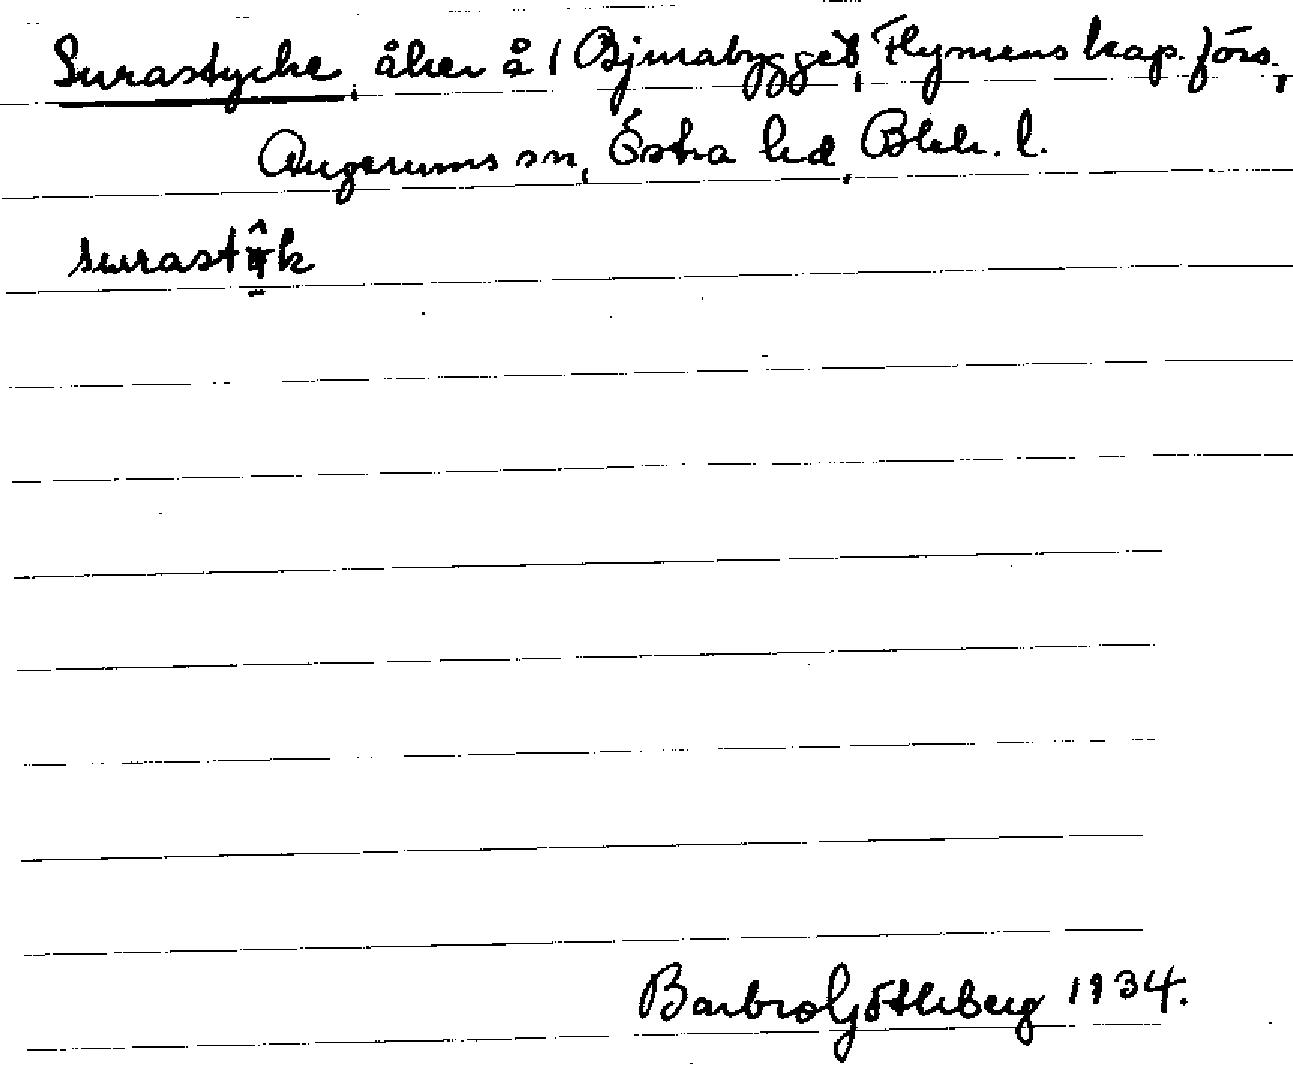 Surastycke, åker å 1 Bjurabygget, Flymens kap. förs.,
Augerums sn, Östra hd, Blek. l.
surastŷk
Barbro Götheberg 1934.